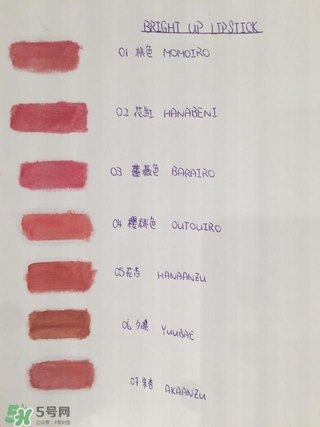 BRIGHT UP LIPSTICK
01 桃色 MOMOIRO
02 花红 HANABENI
03 薔薇色 BARAIRO
04 櫻桃色 OUTOUIRO
05 花杏 HANAANZU
06 夕映 YUUBAE
07 朱杏 AKAANZU
5号网
公众号:5号女性